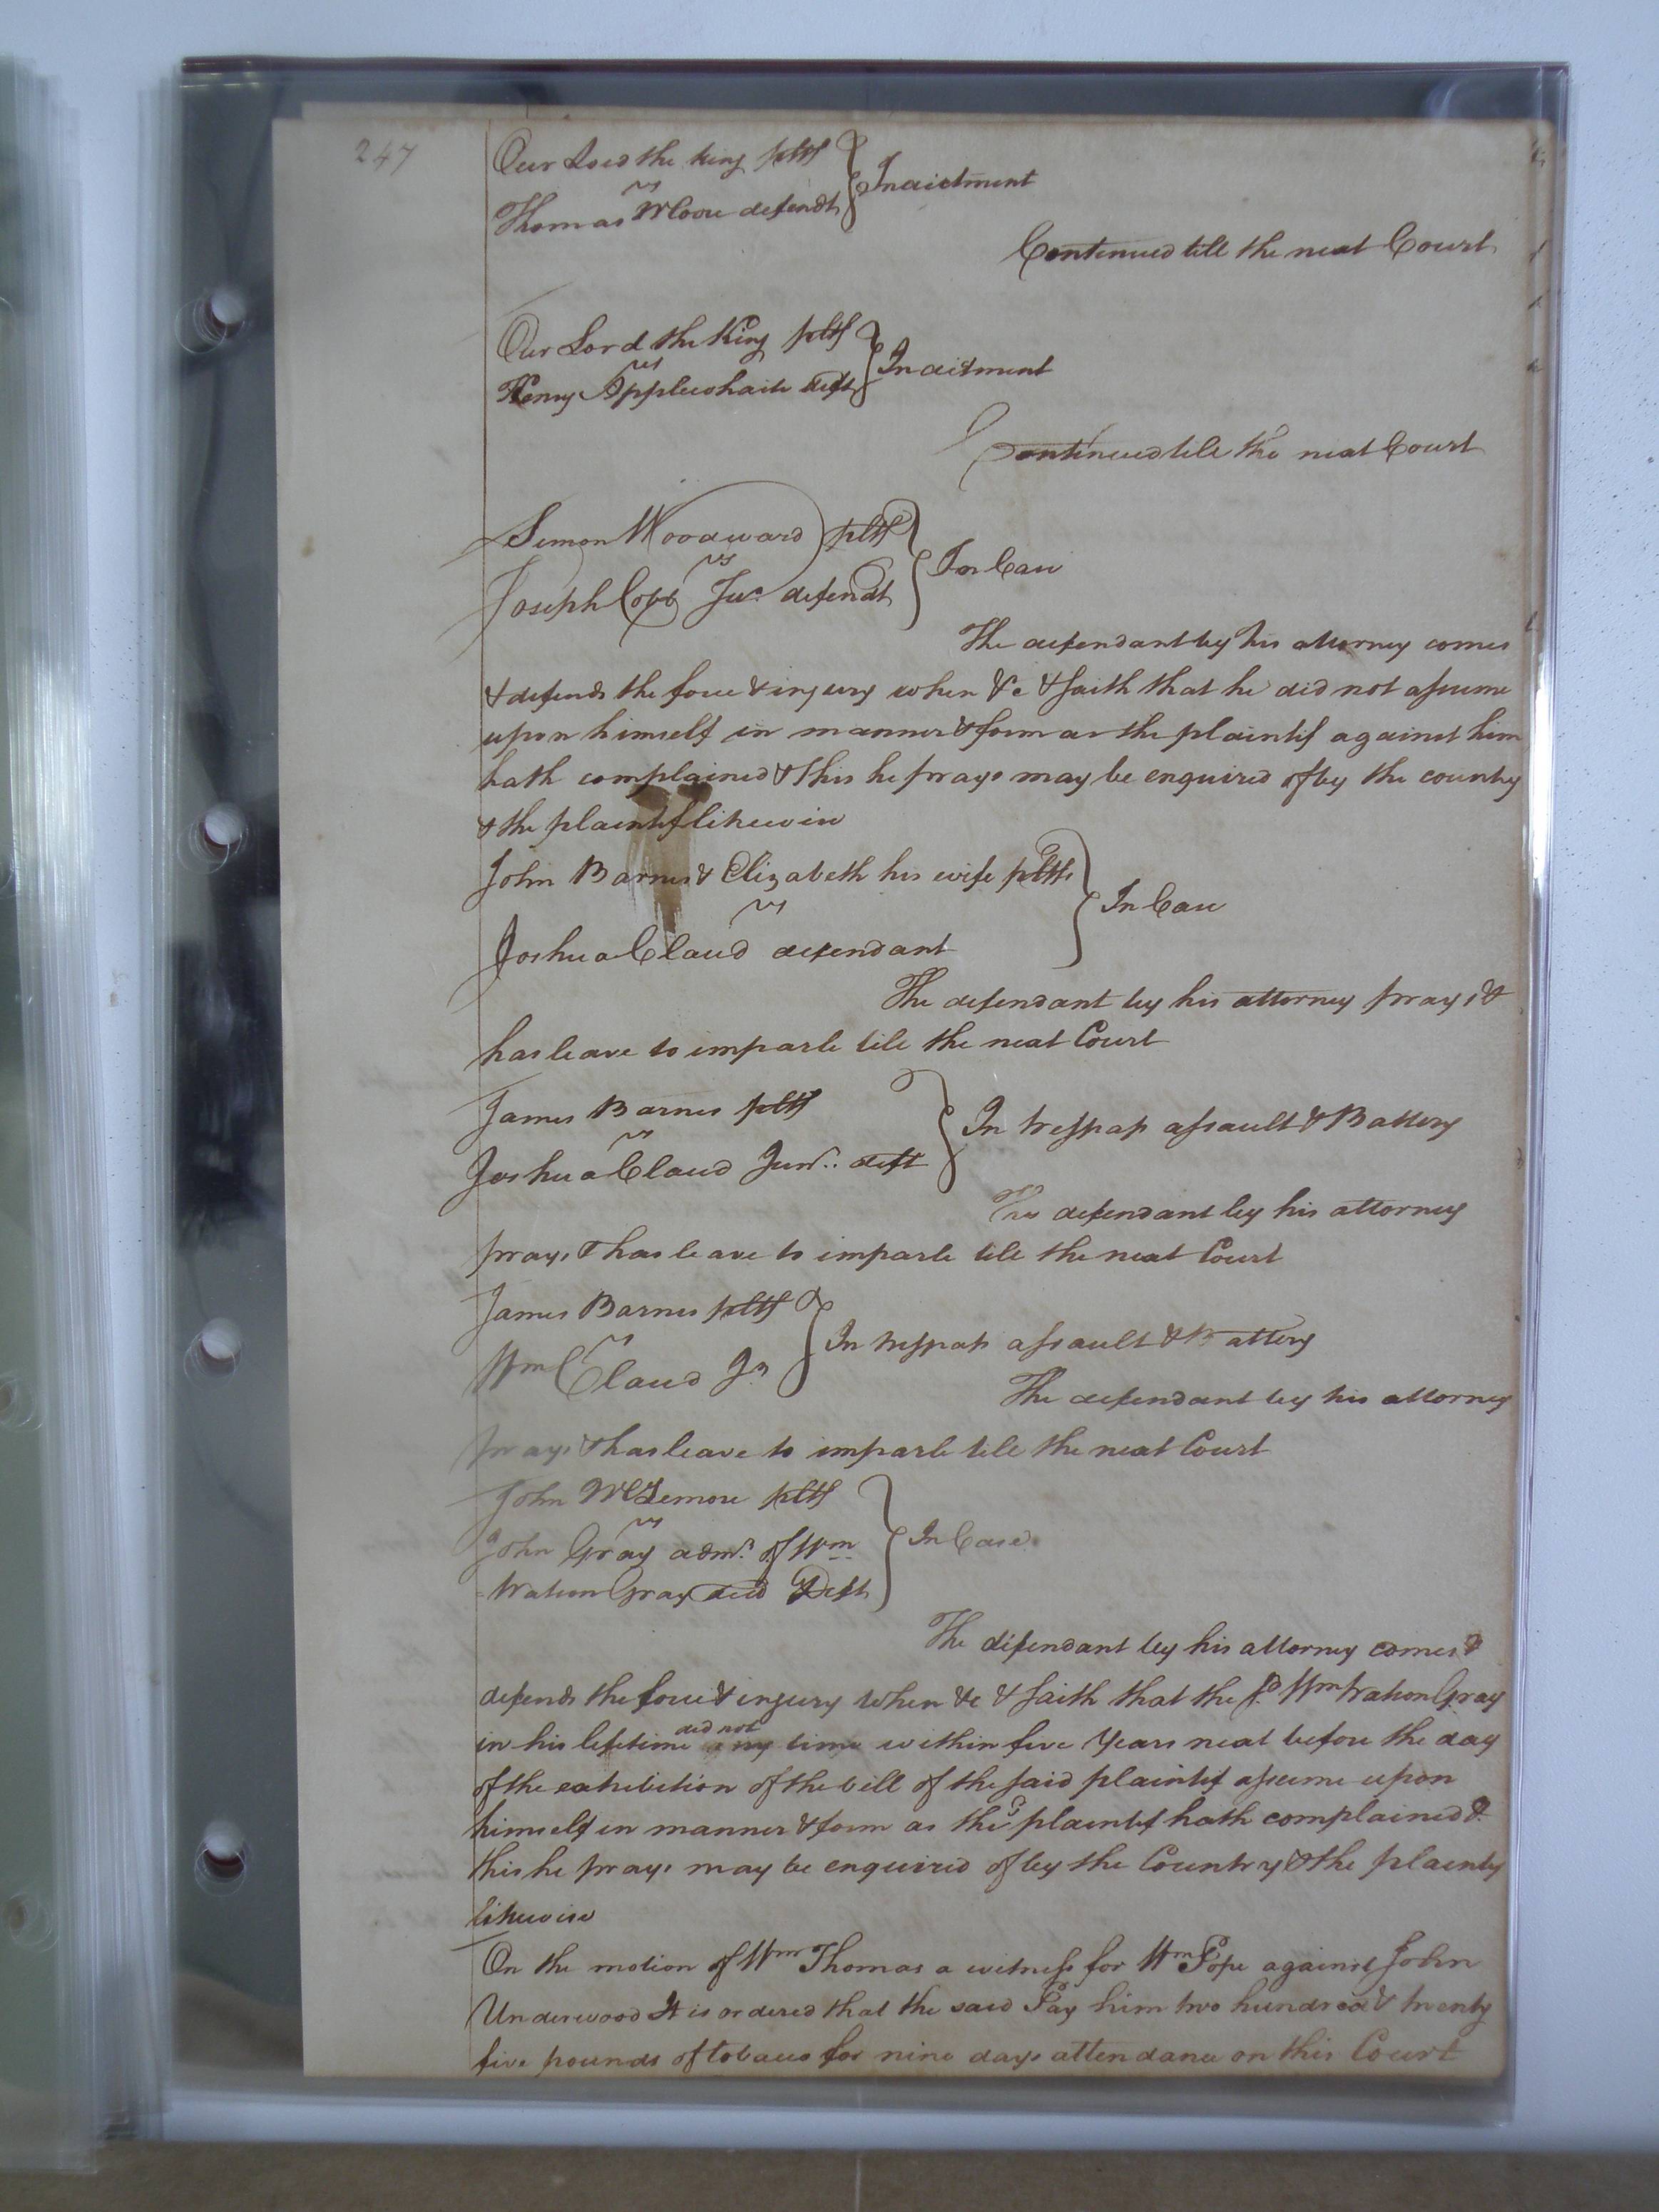 247
Our Lord the king pltf
vs
Thomas Moore defendt
Indictment
Continued till the next Court
Our Lord the King pltf
vs
Henry Applewhaite deft
Indictment
Continued till the next Court
Simon Woodward pltf
vs
Joseph Cobb Junr defendt
In Case
The defendant by his attorney comes
& defends the force & injury when &c & saith that he did not assume
upon himself in manner & form as the plaintif against him
hath complained & this he prays may be enquired of by the country
& the plaintif likewise
John Barnes & Elizabeth his wife pltfs
vs
Joshua Claud defendant
In Case
The defendant by his attorney prays &
has leave to imparle till the next Court
James Barnes pltf
vs
Joshua Claud Junr. deft
In trespass assault & Battery
The defendant by his attorney
prays & has leave to imparle till the next Court
James Barnes pltf
vs
Wm Claud Jr
In trespass assault & Battery
The defendant by his attorney
prays & has leave to imparle till the next Court
John McLemore pltf
vs
John Gray admr. of Wm
Watson Gray decd Deft
In Case
The defendant by his attorney comes &
defends the force & injury when &c & saith that the sd Wm Watson Gray
in his lifetime did not any time within five Years next before the day
of the exhibition of the bill of the said plaintif assume upon
himself in manner & form as the sd plaintif hath complained &
this he prays may be enquired of by the Country & the plaintif
likewise
On the motion of Wm Thomas a witness for Wm Pope against John
Underwood It is ordered that the said Pay him two hundred & twenty
five pounds of tobacco for nine days attendance on this Court